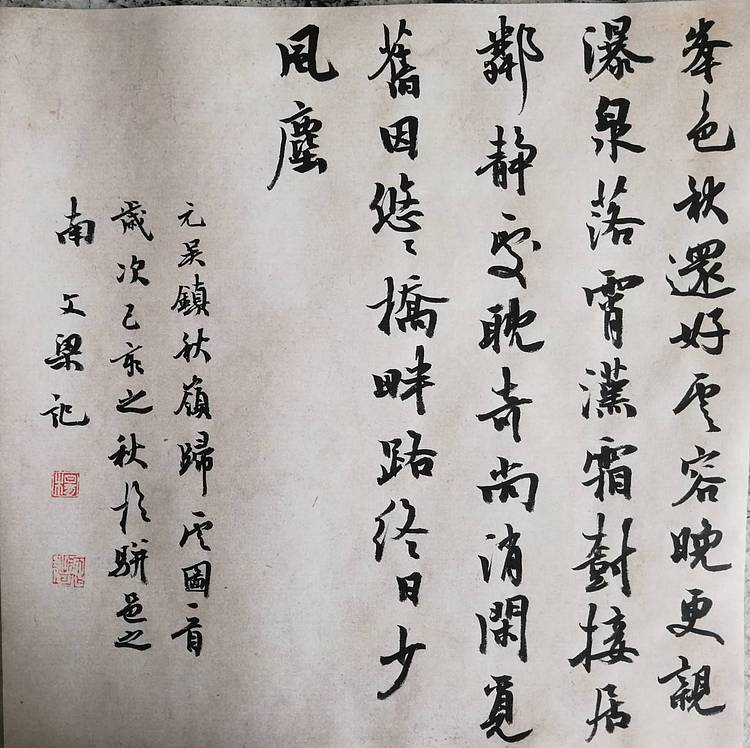 峯色秋還好雲容晚更親
瀑泉落霄漢霜樹接居
鄰靜處耽奇尚消閑覓
舊因悠々橋畔路終日少
風塵
元吳鎮秋嶺歸雲圖一首
歲次己亥之秋於駢邑之
南文梁記
楊